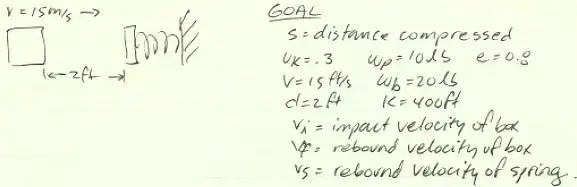 v = 15m/s →
|← 2ft →|
GOAL
s = distance compressed
uK = .3 wp = 10lb e = 0.8
V = 15ft/s wb = 20lb
d = 2ft K = 400ft
vi = impact velocity of box
vf = rebound velocity of box
vs = rebound velocity of spring.